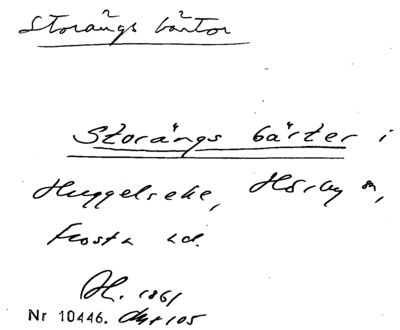 Storängs bärtor
Storängs bärter i
Huggelseke, Hörby sn,
Frosta hd.
H. 1861
Nr 10446. 105